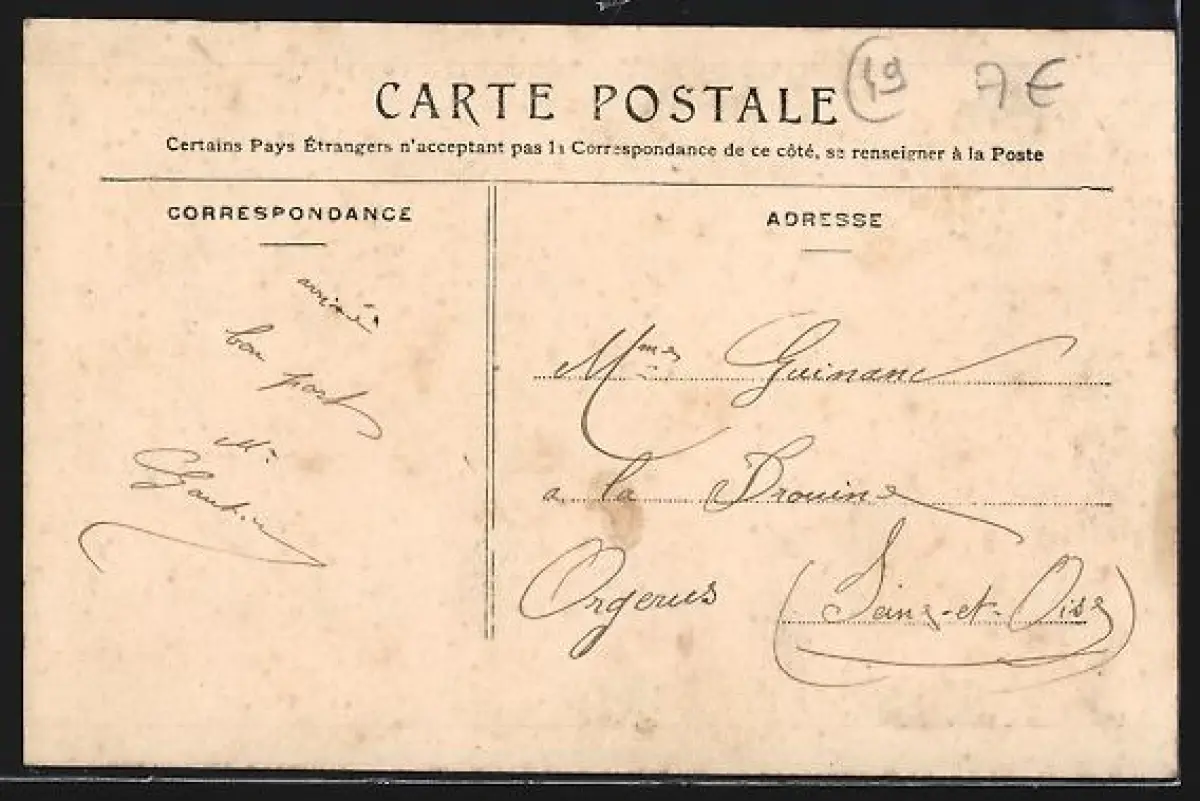 CARTE POSTALE
49 7€
Certains Pays Étrangers n'acceptant pas la Correspondance de ce côté, se renseigner à la Poste
CORRESPONDANCE
arrivé
bon port
Mr
ADRESSE
Mme Guinanc
a la Drouine
Orgerus
(Seine-et-Oise)